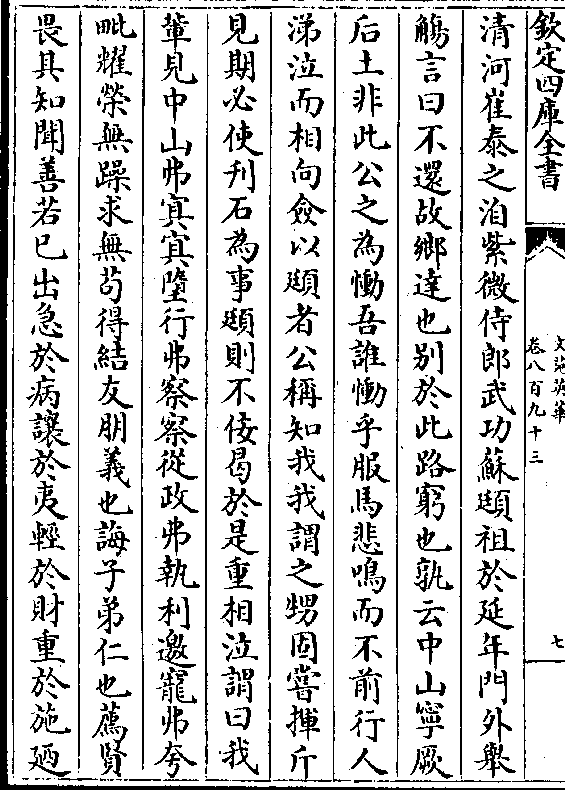 欽定四庫全書
文苑英華
卷八百九十三
七
清河崔泰之洎紫微侍郎武功蘇頲祖於延年門外舉
觴言曰不還故鄉達也别於此路窮也孰云中山寧厥
后土非此公之為慟吾誰慟乎服馬悲鳴而不前行人
涕泣而相向僉以頲者公稱知我我謂之甥固嘗揮斤
見期必使刋石為事頲則不佞曷於是重相泣謂曰我
輩見中山弗寘寘墮行弗察察從政弗執利邀寵弗夸
毗耀榮無躁求無茍得結友朋義也誨子弟仁也薦賢
畏具知聞善若已出急於病讓於夷輕於財重於施廼